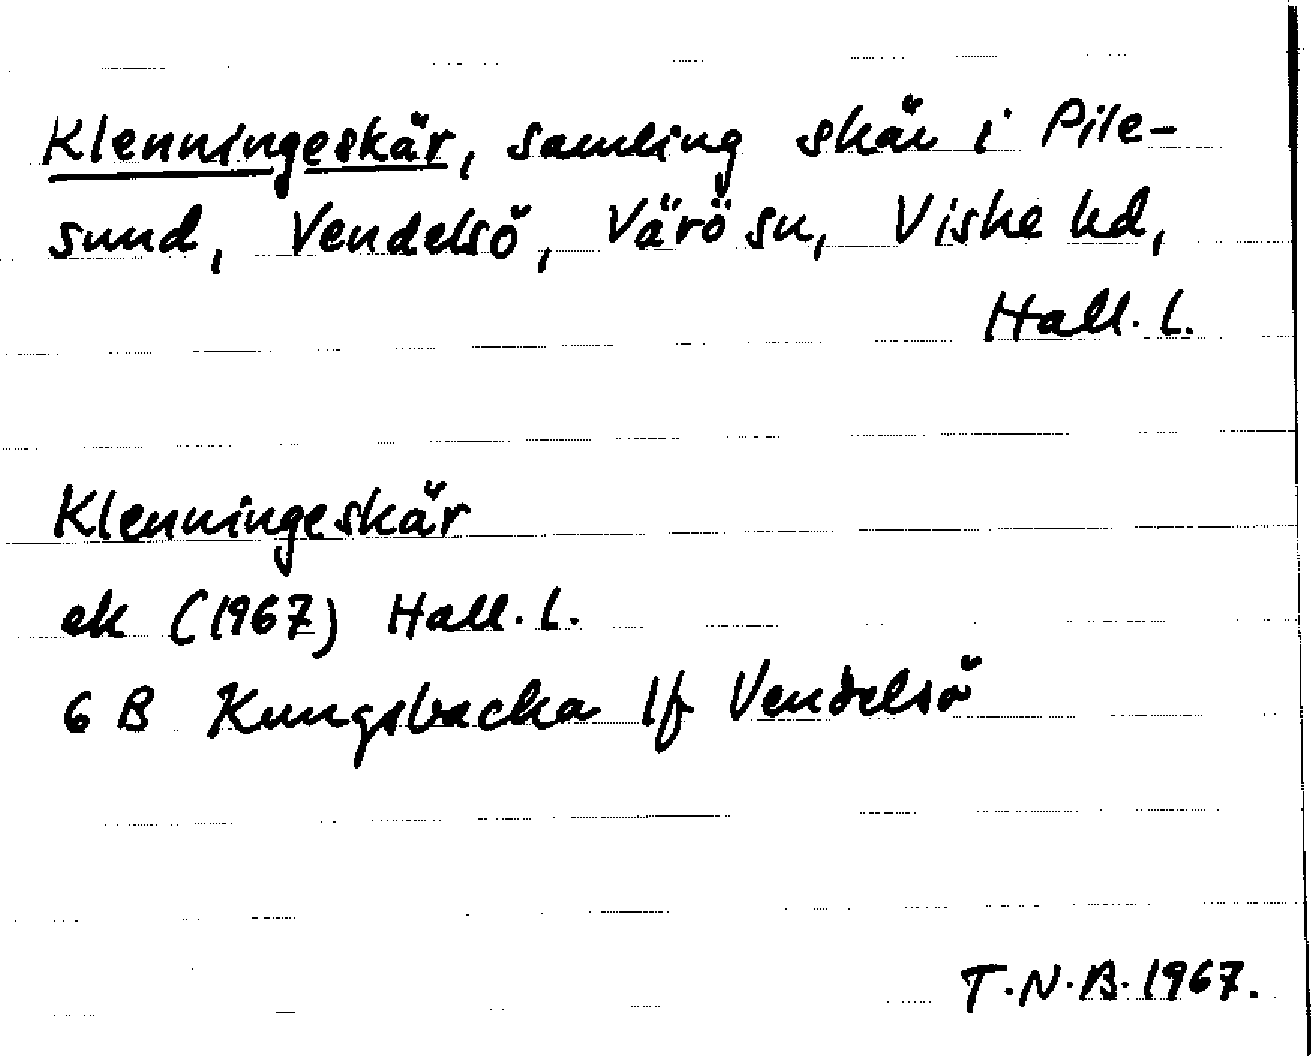 Klenningeskär, samling skär i Pile-
sund, Vendelsö, Värö sn, Viske hd,
Hall. l.
Klenningeskär
ek (1967) Hall. l.
6 B Kungsbacka lf Vendelsö
T.N.B. 1967.